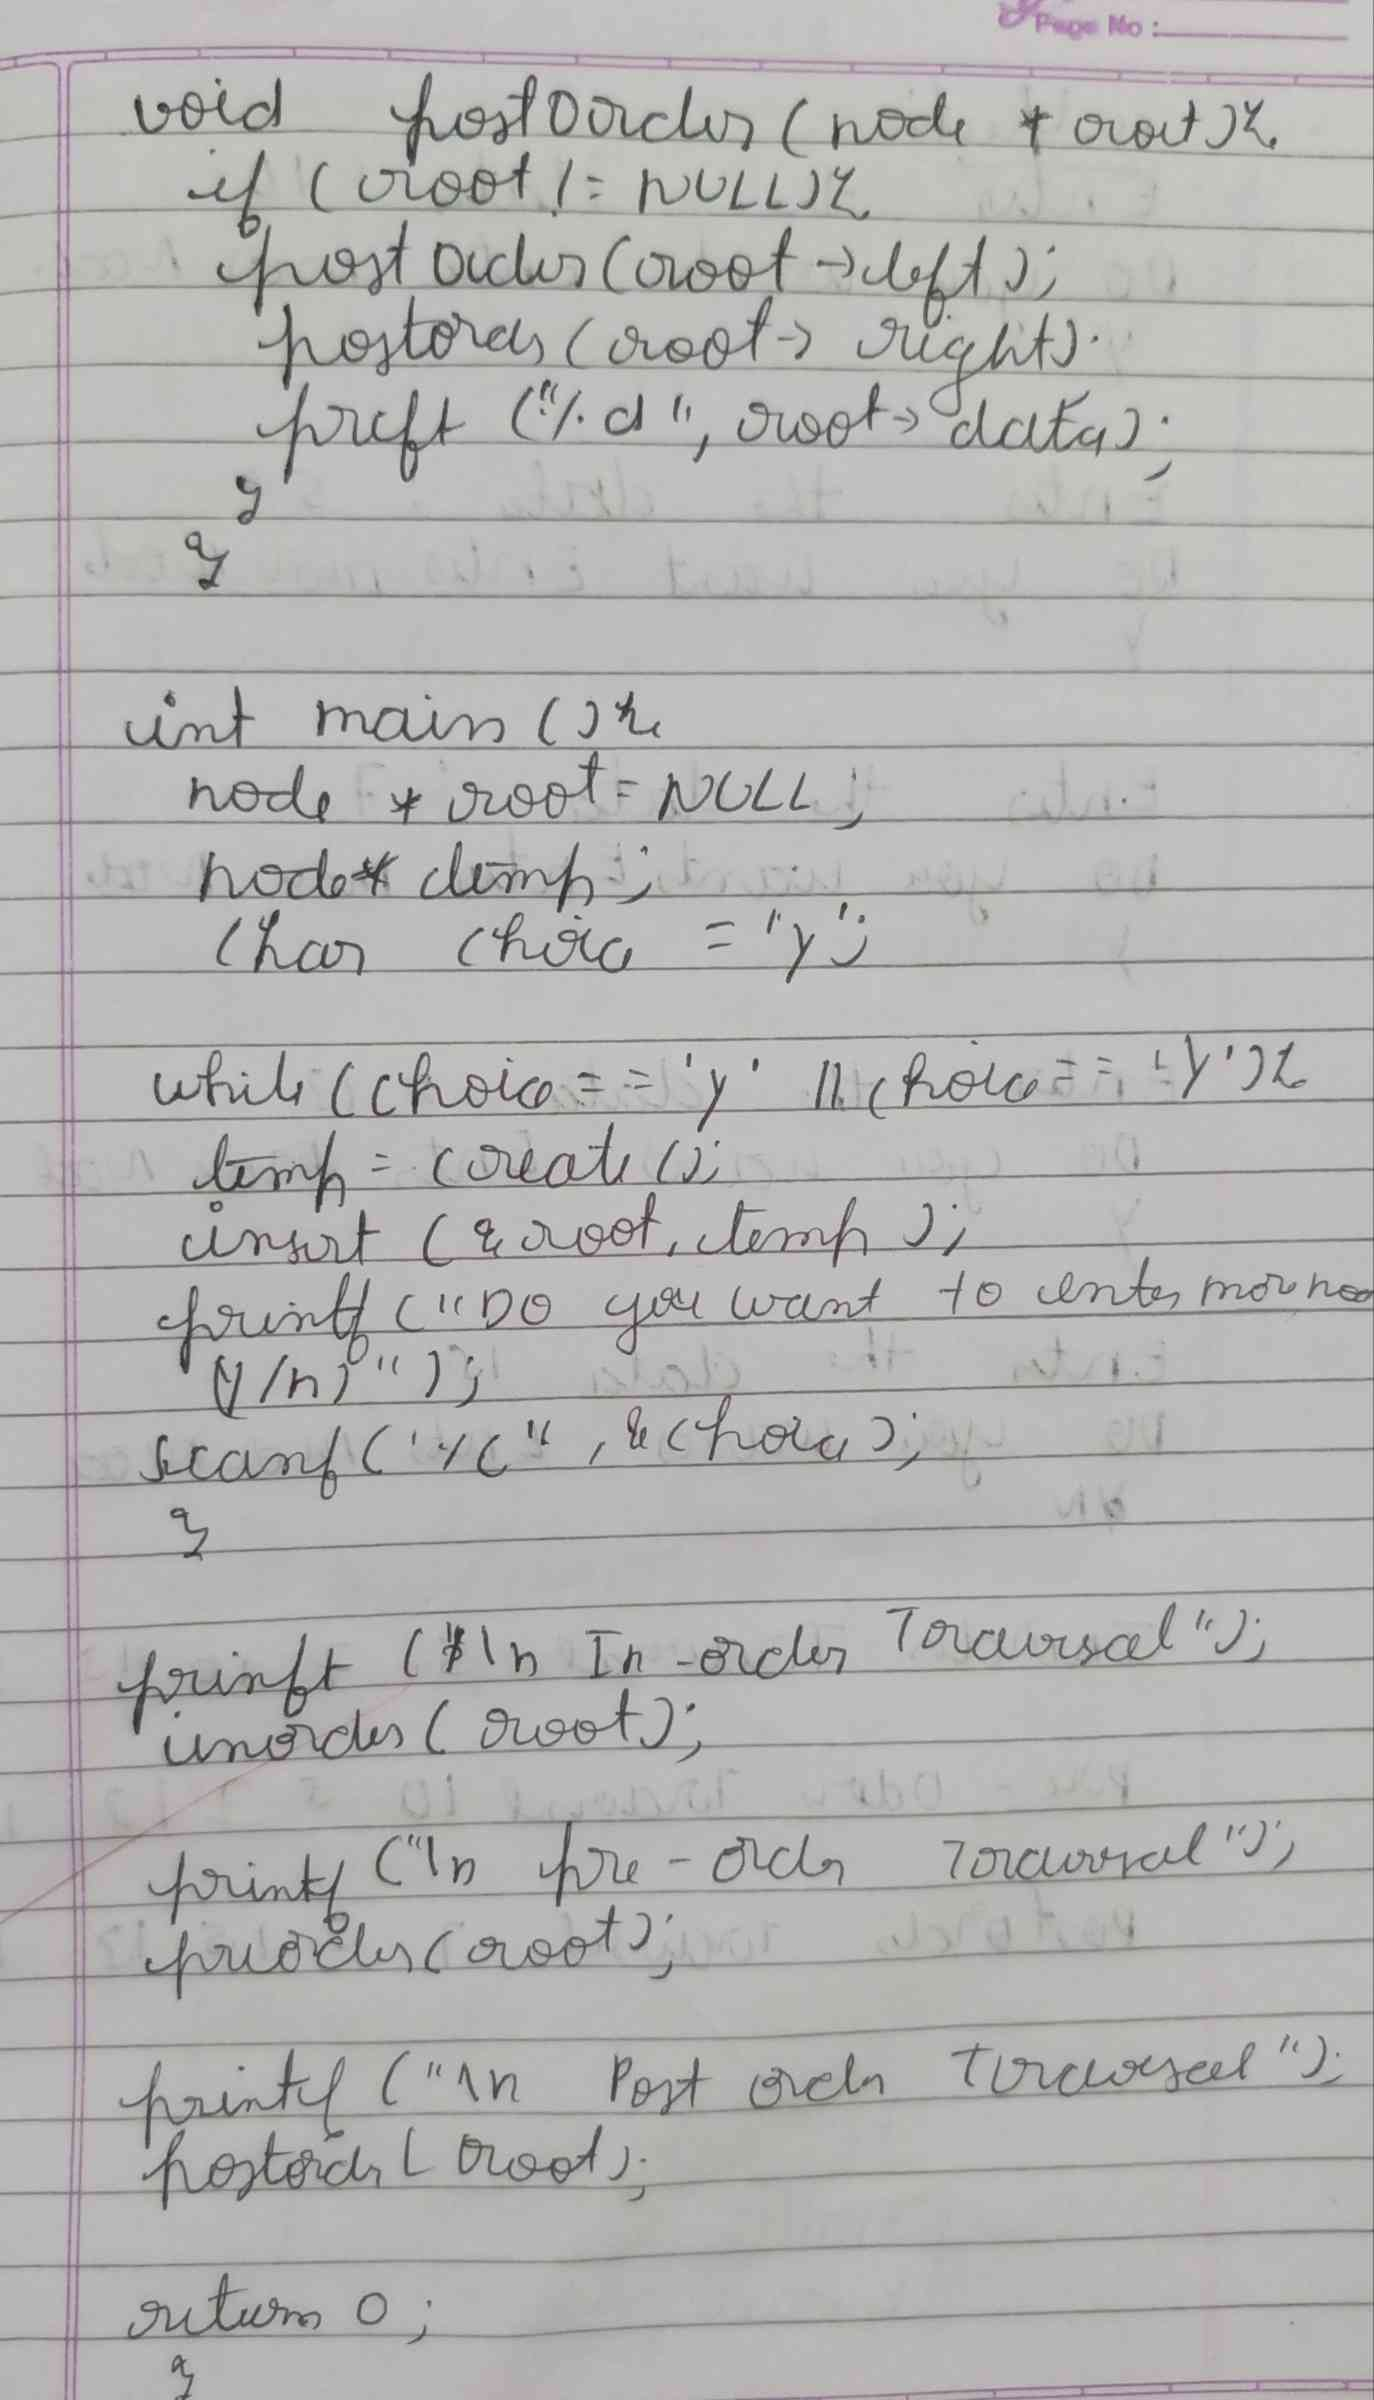 Page No :
void postOrder (node * root){
if (root != NULL){
postOrder (root → left);
postorder (root → right).
prift ("%d", root → data);
}
}
int main (){
node * root = NULL;
node* temp;
Char Choice = 'y';
while (choice == 'y' || choice == 'Y'){
temp = create ();
insert (&root, temp );
printf ("DO you want to enter more
(y/n)");
scanf ('%c", &choice);
}
prinft ("\n In-order Traversal");
inorder ( root);
printf ("\n pre-order Traversal");
preorder (root);
printf ("\n Post order Traversal");
postorder ( root);
return 0 ;
}